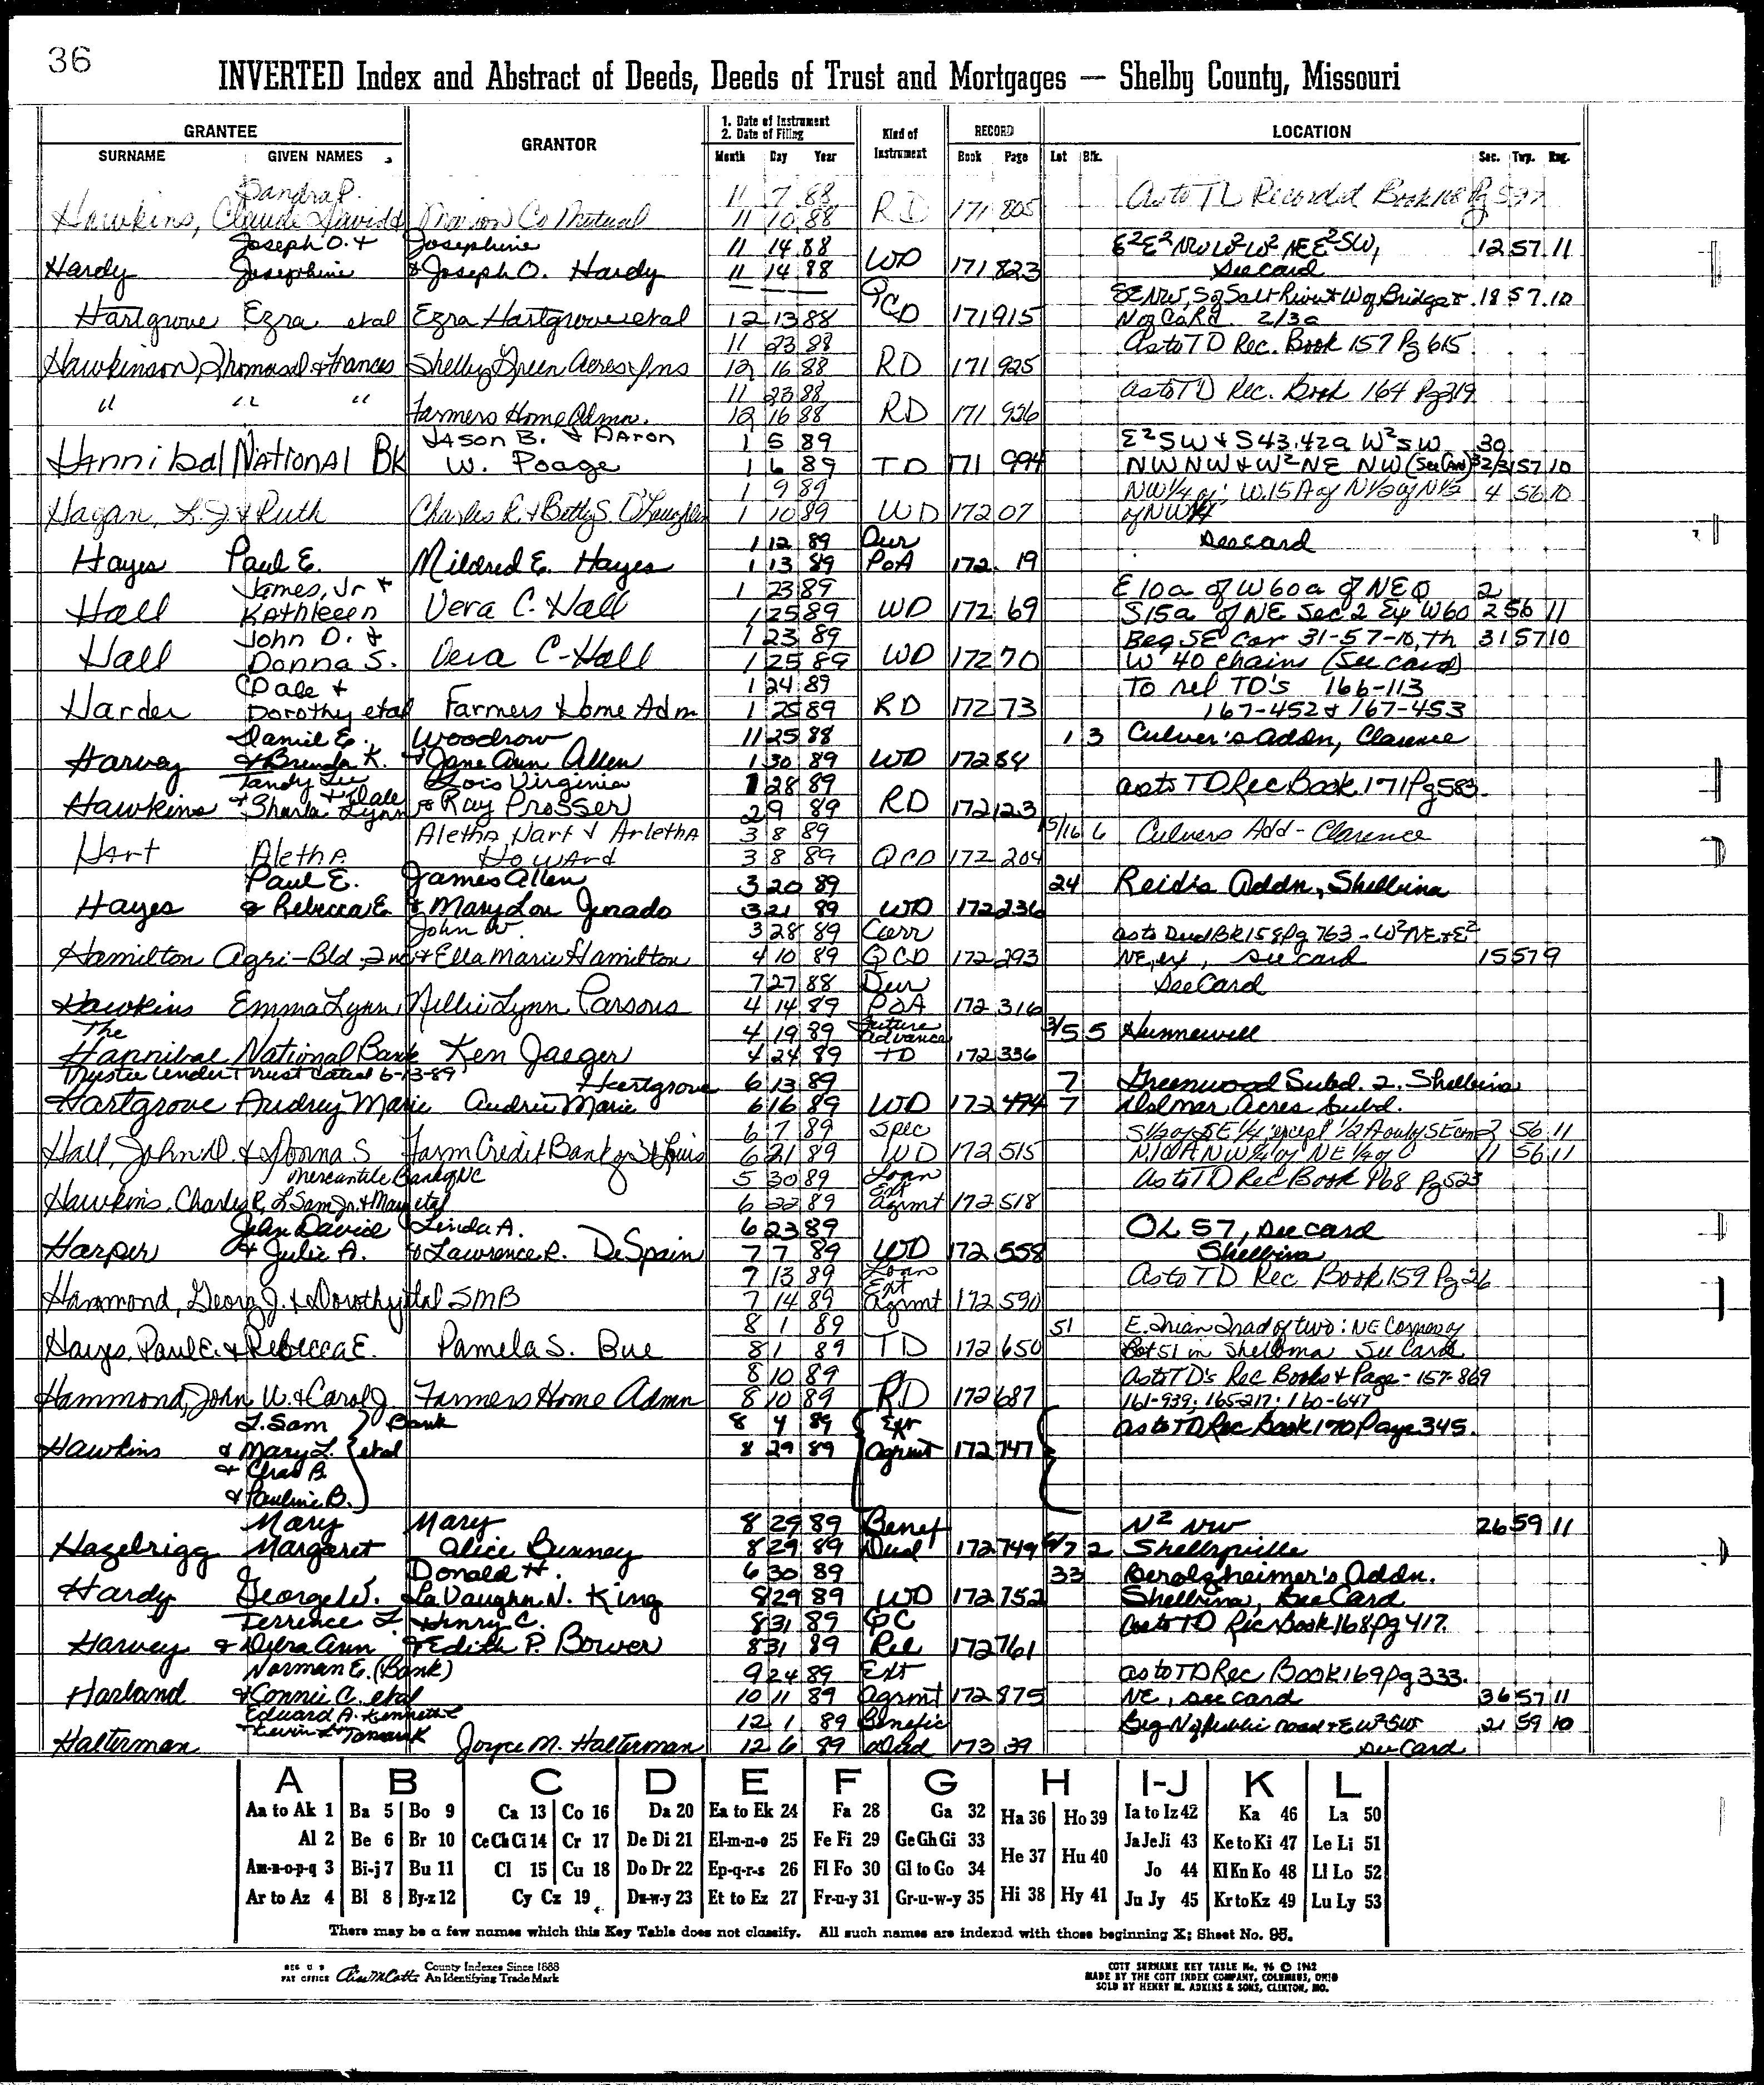 36
INVERTED Index and Abstract of Deeds, Deeds of Trust and Mortgages — Shelby County, Missouri
GRANTEE GRANTOR 1. Date of Instrument 2. Date of Filing Kind of Instrument RECORD LOCATION
SURNAME GIVEN NAMES Month Day Year Book Page Lot Blk. Sec. Twp. Rng.
Sandra P. 11 7 88 As to TD Recorded Book 168 Pg 597
Hawkins, Claude David & Marion Co Mutual 11 10 88 RD 171 805
Joseph O. & Josephine 11 14 88 E²E² NW W² W² NE E² SW, 12 57 11
Hardy Josephine & Joseph O. Hardy 11 14 88 WD 171 823 See card
— — — QCD SE NW, S of Salt River & W of Bridge & 18 57 10
Hartgrove Ezra etal Ezra Hartgrove etal 12 13 88 171 915 N of Co Rd 2/3a
11 23 88 As to TD Rec. Book 157 Pg 615
Hawkinson, Thomas & Frances Shelby Green Acres Inns 12 16 88 RD 171 925
" " " 11 23 88 As to TD Rec. Book 164 Pg 219
Farmers Home Admn. 12 16 88 RD 171 926
Jason B. & Aaron 1 5 89 E² SW & S 43.42a W² SW 30
Hannibal National Bk W. Poage 1 6 89 TD 171 994 NW NW & W² NE NW (See Card) 32/31 57 10
1 9 89 NW 1/4 of; W. 15 A of N 1/2 of N 1/2 4 56 10
Hagan, L. J. & Ruth Charles R. & Betty S. O'Laughlin 1 10 89 WD 172 07 of NW 1/4
1 12 89 Dur See card
Hayes Paul E. Mildred E. Hayes 1 13 89 PoA 172 19
James, Jr & 1 23 89 E 10a of W 60a of NE Q 2
Hall Kathleen Vera C. Hall 1 25 89 WD 172 69 S 15a of NE Sec 2 Ex W 60 2 56 11
John D. & 1 23 89 Beg SE Cor 31-57-10, Th 31 57 10
Hall Donna S. Vera C. Hall 1 25 89 WD 172 70 W 40 chains (See card)
Dale & 1 24 89 To rel TD's 166-113
Harder Dorothy etal Farmers Home Adm 1 25 89 RD 172 73 167-452 & 167-453
Daniel E. Woodrow 11 25 88 1 3 Culver's Addn, Clarence
Harvey & Brenda K. & Jane Ann Allen 1 30 89 WD 172 84
Tandy Lee & Dale Lois Virginia 1 28 89 As to TD Rec Book 171 Pg 583.
Hawkins & Sharla Lynn & Ray Prosser 2 9 89 RD 172 123
Aletha Hart & Arletha 3 8 89 15/16 6 Culvers Add - Clarence
Hart Aletha Howard 3 8 89 QCD 172 204
Paul E. James Allen 3 20 89 24 Reid's Addn, Shelbina
Hayes & Rebecca E. & Mary Lou Jurado 3 21 89 WD 172 236
John W. 3 28 89 Corr As to Deed BK 158 Pg 763 - W² NE & E²
Hamilton Agri-Bld, Inc & Ella Marie Hamilton 4 10 89 QCD 172 293 NE, ex, See card 15 57 9
7 27 88 Dur See Card
Hawkins Emma Lynn Nellie Lynn Parsons 4 14 89 PoA 172 316
The 4 19 89 Future Advance 3/5 5 Hunnewell
Hannibal National Bank Ken Jaeger 4 24 89 TD 172 336
Trustee Under Trust dated 6-13-89 Hartgrove 6 13 89 7 Greenwood Subd. 2. Shelbina
Hartgrove Audrey Marie Audrie Marie 6 16 89 WD 172 494 7 Delmar Acres Subd.
6 7 89 Spec S 1/2 of SE 1/4 except 1/2 A out of SE cor 2 56 11
Hall, John D. & Donna S Farm Credit Bank of St Louis 6 21 89 WD 172 515 N 10 A NW 1/4 of NE 1/4 of 11 56 11
Mercantile Bank of NC 5 30 89 Loan Ext As to TD Rec Book 168 Pg 523
Hawkins, Charles R, L Sam Jr. & Mary etal 6 22 89 Agrmt 172 518
John David Linda A. 6 23 89 OL 57, See card
Harper & Julie A. & Lawrence R. DeSpain 7 7 89 WD 172 558 Shelbina
7 13 89 Loan Ext As to TD Rec Book 159 Pg 26
Hammond, George J. & Dorothy etal SMB 7 14 89 Agrmt 172 590
8 1 89 51 E. Trian Trad of two: NE Corner of
Hayes, Paul E. & Rebecca E. Pamela S. Bue 8 1 89 TD 172 650 Lot 51 in Shelbina See Card
8 10 89 As to TD's Rec Books & Page - 157-869
Hammond, John W. & Carol J. Farmers Home Admn 8 10 89 RD 172 687 161-939; 165-217; 160-647
L. Sam Bank 8 4 89 Ext As to TD Rec Book 170 Page 345.
Hawkins & Mary L. etal 8 29 89 Agrmt 172 747
& Chas B.
& Pauline B.
Mary Mary 8 29 89 Benef N² NW 26 59 11
Hazelrigg Margaret Alice Bunney 8 29 89 Deed 172 749 6/7 2 Shelbyville
Donald H. 6 30 89 33 Berolzheimer's Addn.
Hardy George W. LaVaughn N. King 8 29 89 WD 172 752 Shelbina, See Card
Terrence L Henry C. 8 31 89 QC As to TD Rec Book 168 Pg 417.
Harvey & Debra Ann & Edith P. Bower 8 31 89 Rel 172 761
Norman E. (Bank) 9 24 89 Ext As to TD Rec Book 169 Pg 333.
Harland & Connie C. etal 10 11 89 Agrmt 172 875 NE, See card 36 57 11
Edward A. Kenneth L 12 1 89 Benefic Beg N of public road & E W² SW 21 59 10
Halterman & Kevin L Joyce M. Halterman 12 6 89 Deed 173 39 See Card
A B C D E F G H I-J K L
Aa to Ak 1 Ba 5 Bo 9 Ca 13 Co 16 Da 20 Ea to Ek 24 Fa 28 Ga 32 Ha 36 Ho 39 Ia to Iz 42 Ka 46 La 50
Al 2 Be 6 Br 10 Ce Ch Ci 14 Cr 17 De Di 21 El-m-n-o 25 Fe Fi 29 Ge Gh Gi 33 He 37 Hu 40 Ja Je Ji 43 Ke to Ki 47 Le Li 51
Am-n-o-p-q 3 Bi-j 7 Bu 11 Cl 15 Cu 18 Do Dr 22 Ep-q-r-s 26 Fl Fo 30 Gl to Go 34 Jo 44 Kl Kn Ko 48 Ll Lo 52
Ar to Az 4 Bl 8 By-z 12 Cy Cz 19 Du-w-y 23 Et to Ez 27 Fr-u-y 31 Gr-u-w-y 35 Hi 38 Hy 41 Ju Jy 45 Kr to Kz 49 Lu Ly 53
There may be a few names which this Key Table does not classify. All such names are indexed with those beginning X; Sheet No. 95.
REG U S PAT OFFICE County Indexes Since 1888 An Identifying Trade Mark
COTT SURNAME KEY TABLE No. 96 © 1962
MADE BY THE COTT INDEX COMPANY, COLUMBUS, OHIO
SOLD BY HENRY M. ADKINS & SONS, CLINTON, MO.